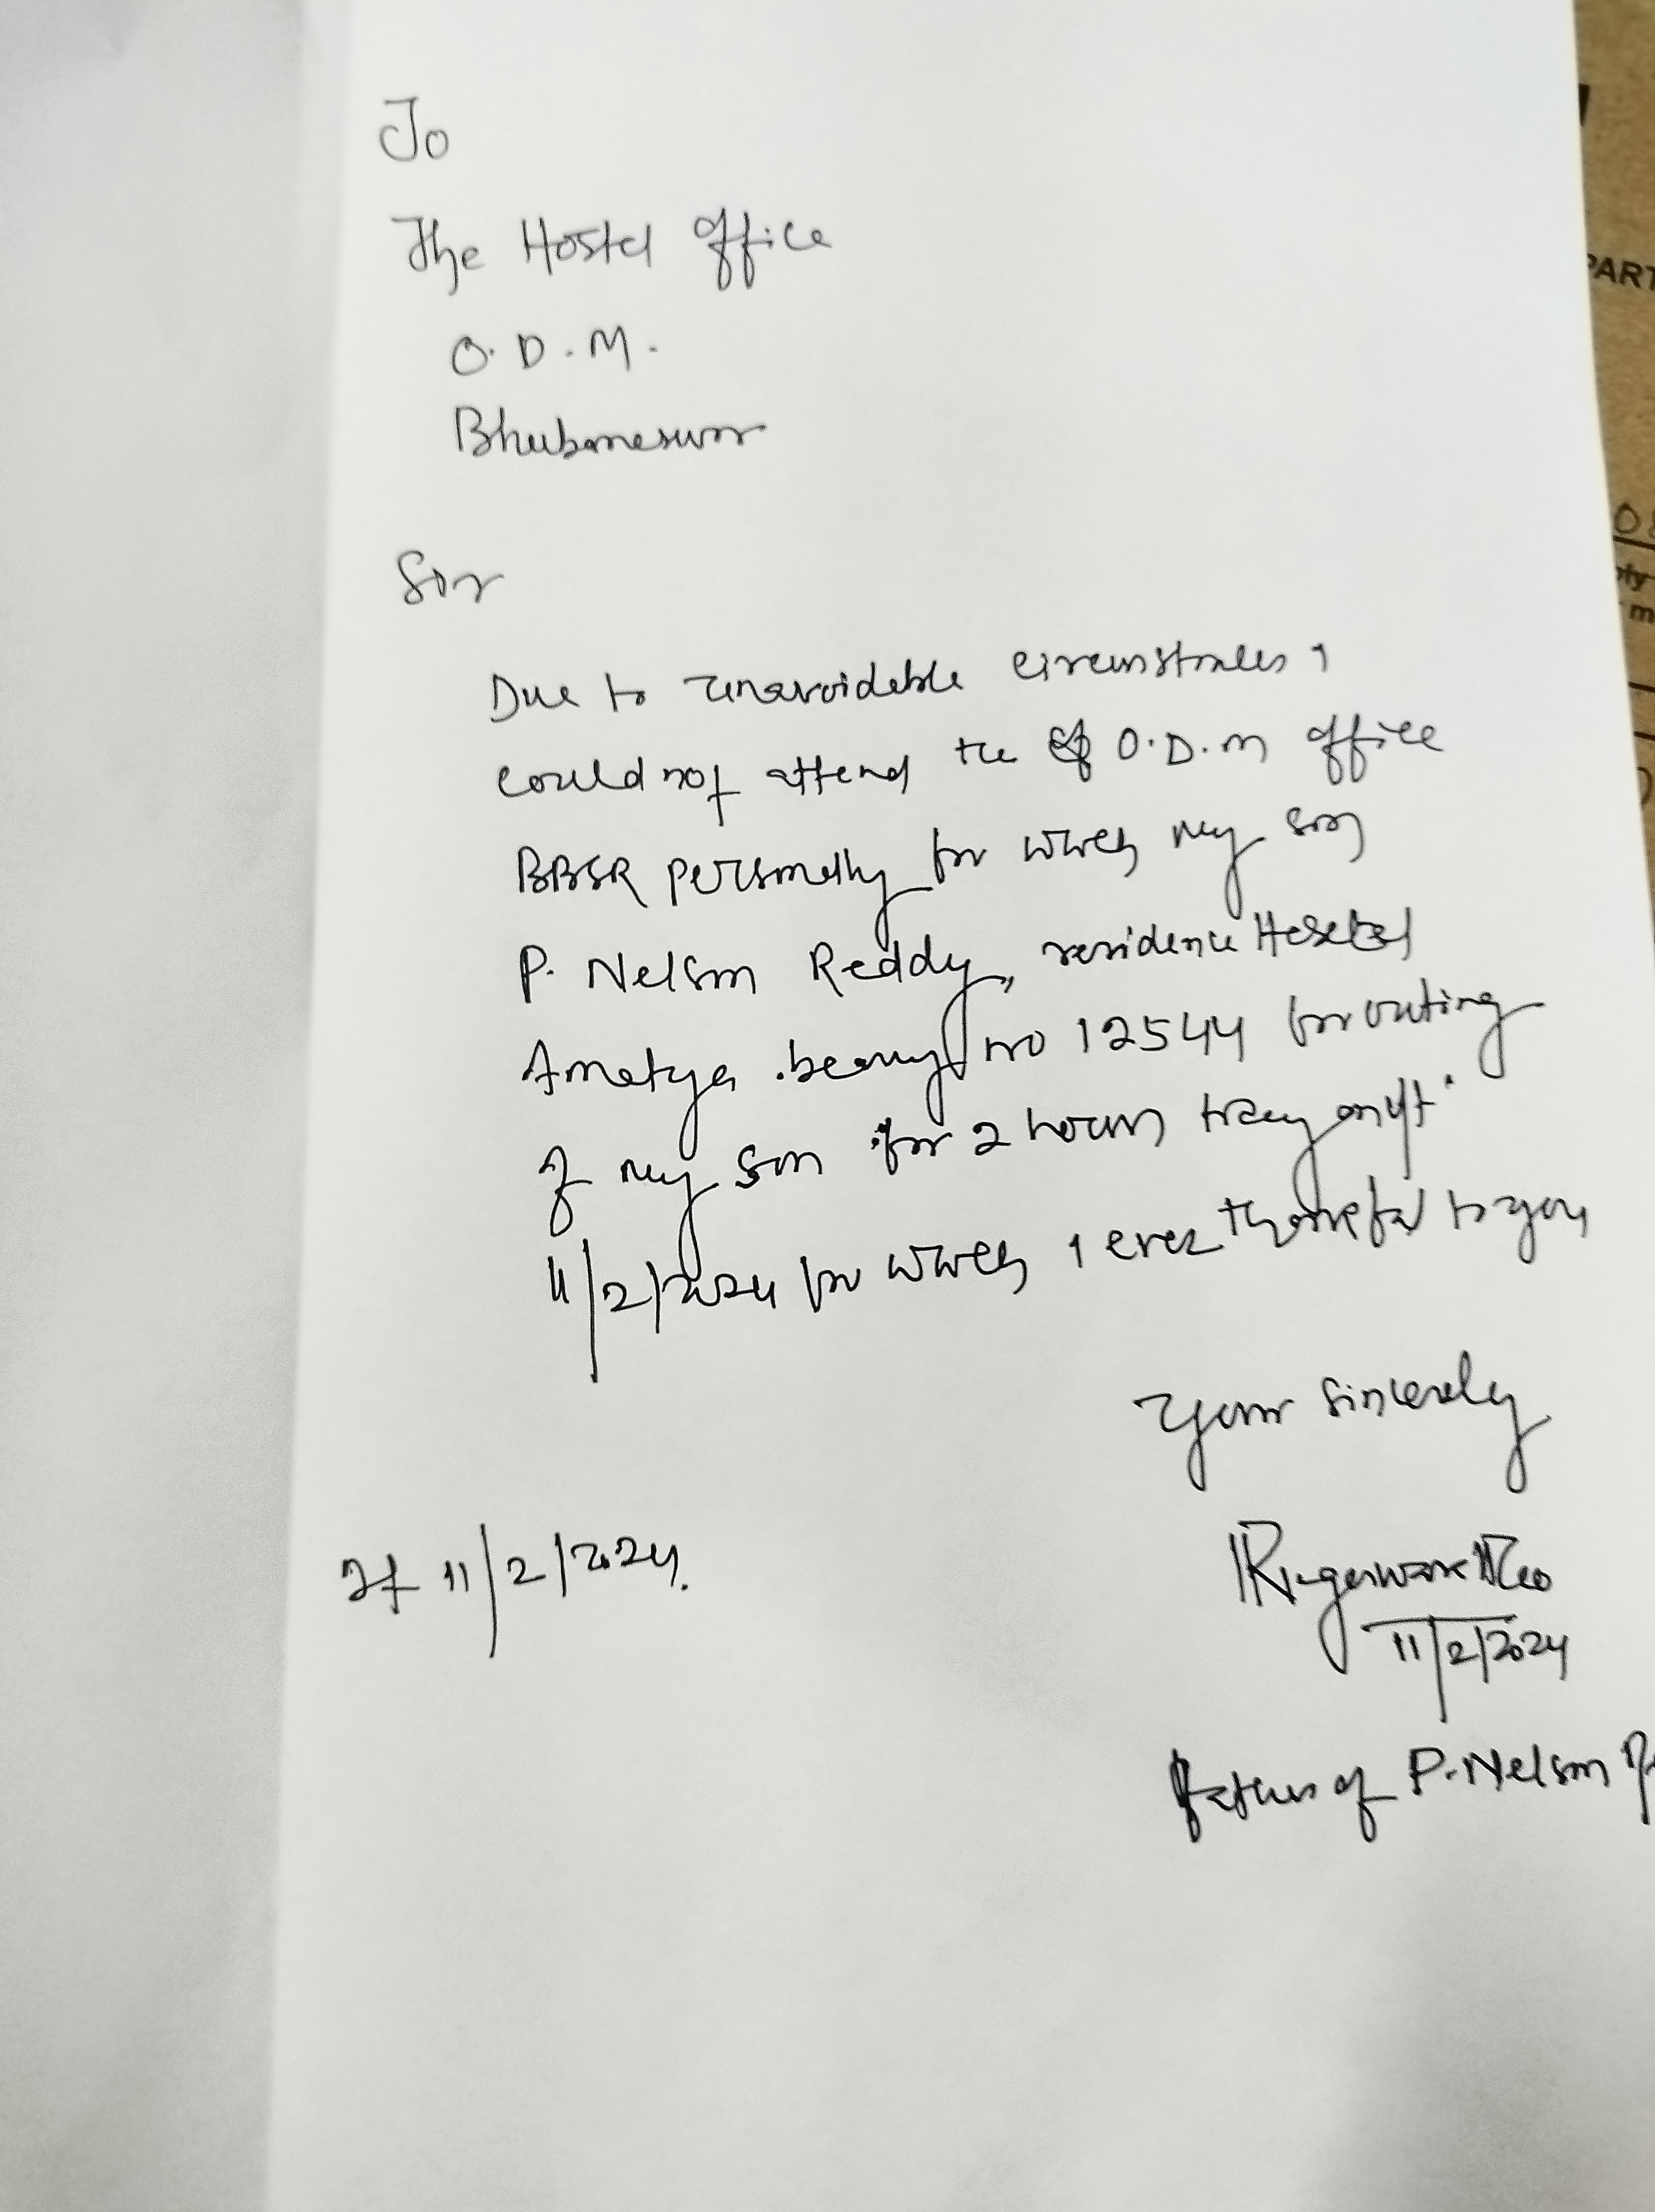 To
The Hostel office
O.D.M.
Bhubaneswar
Sir
Due to unavoidable circumstances I
could not attend the of O.D.M office
BBSR personally for which my son
P. Nelson Reddy, residence Hostel
Amatya bearing no 12544 for outing
of my son for 2 hours today only
11/2/2024 for which I ever thankful to you
Your sincerely
Dt 11/2/2024.
11/2/2024
father of P. Nelson
PART